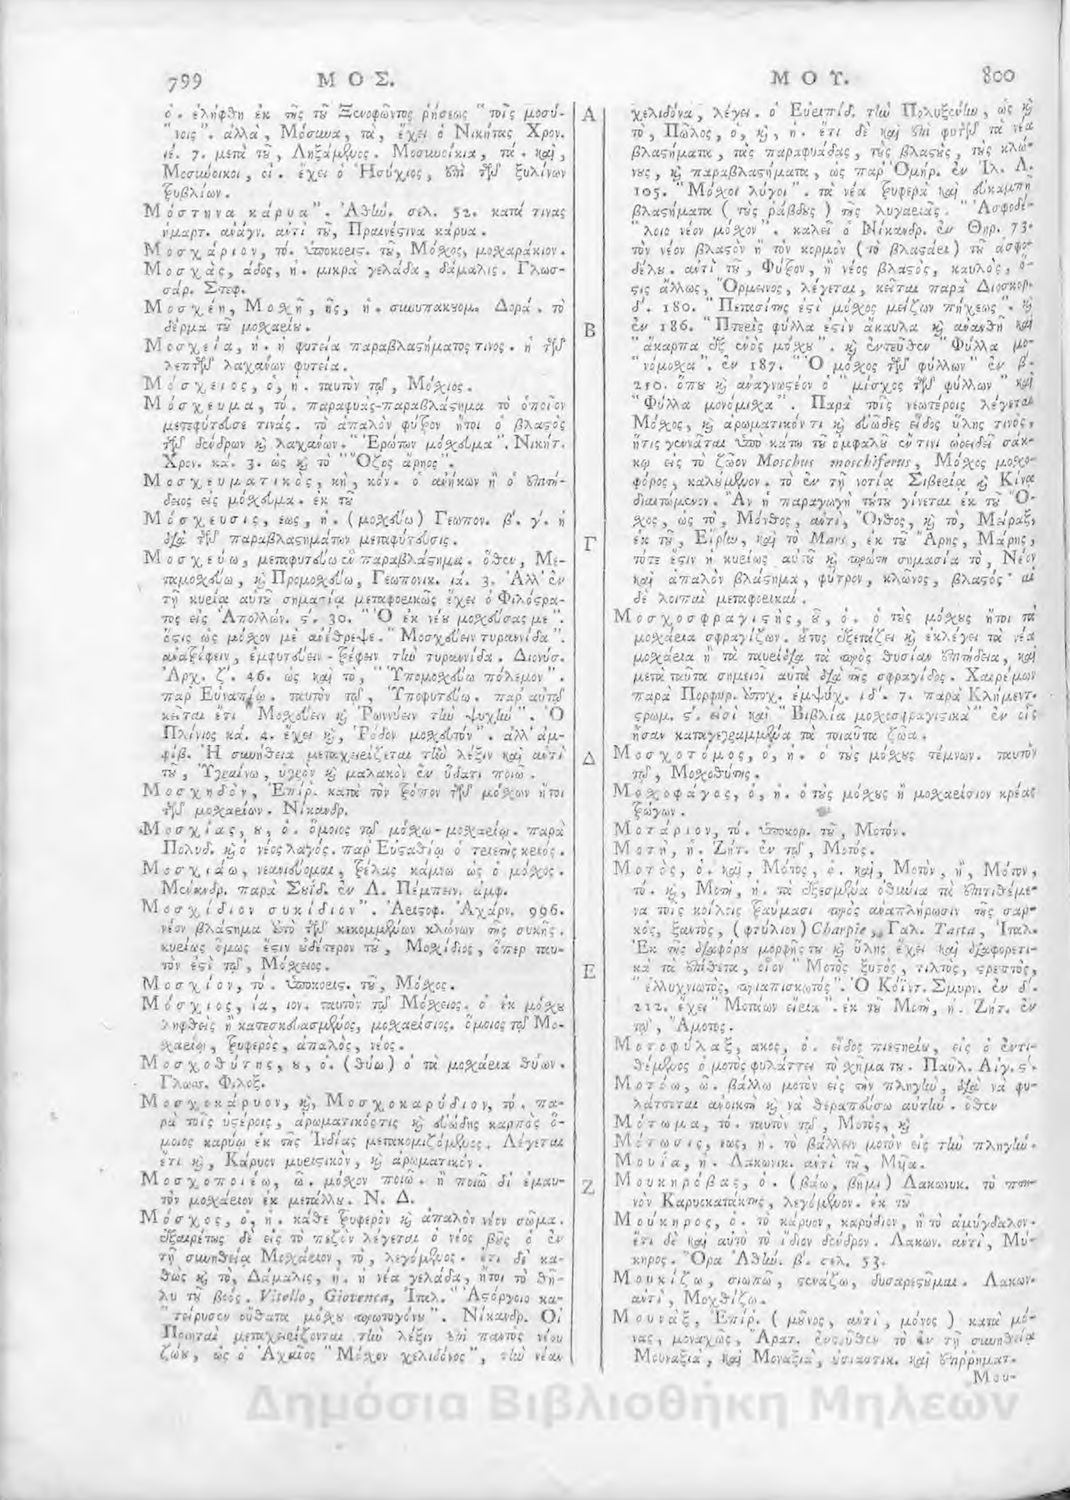 799 ΜΟΣ.
ὁ. ἐλήφθη ἐκ τῆς τοῦ Ξενοφῶντος ῥήσεως "τοῖς μοσύ-
"νοις". ἀλλὰ, Μόσυνα, τὰ, ἔχει ὁ Νικήτας Χρον.
ιέ. 7. μετὰ τοῦ, Μοσυνοίκια, τά. καὶ,
Μοσύνοικοι, οἱ. ἔχει ὁ Ἡσύχιος, ἐπὶ τῶν ξυλίνων
Μόστηνα κάρυα". Ἀθήν. σελ. 52. κατά τινας
ἡμαρτ. ἀνάγν. ἀντὶ τοῦ, Πραινέστινα κάρυα.
Μοσχάριον, τό. ὑποκορις. τοῦ, Μόσχος, μοσχαράκιον.
Μοσχὰς, άδος, ἡ. μικρὰ γελάδα, δάμαλις. Γλωσ-
σάρ. Στεφ.
Μοσχέη, Μοσχῆ, ῆς, ἡ. συνυπακουομ. Δορά. τὸ
δέρμα τοῦ μοσχαρίου.
Μοσχεία, ἡ. ἡ φυτεία παραβλαστήματος τινος. ἡ τῶν
λεπτῶν λαχάνων φυτεία.
Μόσχειος, ὁ, ἡ. ταυτὸν τῷ, Μόσχιος.
Μόσχευμα, τό. παραφυὰς-παραβλάστημα τὸ ὁποῖον
μετεφύτευσε τινάς. τὸ ἁπαλὸν φύτρον ἤτοι ὁ βλαστὸς
τῶν δένδρων καὶ λαχάνων. "Ἐρώτων μόσχευμα". Νικήτ.
Χρον. κά. 3. ὡς καὶ τὸ "Ὄζος ἄρηος".
Μοσχευματικὸς, κὴ, κόν. ὁ ἀνήκων ἢ ὁ ἐπιτή-
δειος εἰς μόσχευμα. ἐκ τοῦ
Μόσχευσις, εως, ἡ. (μοσχεύω) Γεωπον. β'. γ'. ἡ
διὰ τῶν παραβλαστημάτων μεταφύτευσις.
Μοσχεύω, μεταφυτεύω ἓν παραβλάστημα. ὅθεν, Με-
ταμοσχεύω, καὶ Προμοσχεύω, Γεωπονικ. ιά. 3. Ἀλλ' ἐν
τῇ κυρίᾳ αὐτοῦ σημασίᾳ μεταφορικῶς ἔχει ὁ Φιλόστρα-
τος εἰς Ἀπολλών. ς'. 30. "Ὁ ἐκ νέου μοσχεύσας με".
ὅστις ὡς μόσχον μὲ ἀνέθρεψε. "Μοσχεύειν τυραννίδα".
ἀνατρέφειν, ἐμφυτεύειν - τρέφειν τὴν τυραννίδα. Διονύσ.
Ἀρχ. ζ'. 46. ὡς καὶ τὸ, "Ὑπομοσχεύω πόλεμον".
παρ' Εὐναπίῳ. ταυτὸν τῷ, Ὑποφυτεύω. παρ' αὐτῷ
κεῖται ἔτι "Μοσχεύειν καὶ Ῥωννύειν τὴν ψυχήν". Ὁ
Πλίνιος κά. 4. ἔχει καὶ, "Ῥόδον μοσχευτόν". ἀλλ' ἀμ-
φίβ. Ἡ συνήθεια μεταχειρίζεται τὴν λέξιν καὶ ἀντὶ
τοῦ, Ὑγραίνω, ὑγρὸν καὶ μαλακὸν ἐν ὕδατι ποιῶ.
Μοσχηδὸν, Ἐπίρ. κατὰ τὸν τρόπον τῶν μόσχων ἤτοι
τῶν μοσχαρίων. Νίκανδρ.
Μοσχίας, ου, ὁ. ὅμοιος τῷ μόσχῳ-μοσχαρίῳ. παρὰ
Πολυδ. καὶ ὁ νέος λαγός. παρ' Εὐσταθίῳ ὁ τριετὴς κριός.
Μοσχιάω, νεανιεύομαι, τρέλας κάμνω ὡς ὁ μόσχος.
Μένανδρ. παρὰ Σουίδ. ἐν Λ. Πέμπειν. ἀμφ.
Μοσχίδιον συκίδιον". Ἀριστοφ. Ἀχάρν. 996.
νέον βλάστημα ἀπὸ τῶν κεκομμένων κλώνων τῆς συκῆς.
κυρίως ὅμως ἐστὶν οὐδέτερον τοῦ, Μοσχίδιος, ὅπερ ταυ-
τόν ἐστι τῷ, Μόσχειος.
Μοσχίον, τό. ὑποκορις. τοῦ, Μόσχος.
Μόσχιος, ία, ιον. ταυτὸν τῷ Μόσχειος. ὁ ἐκ μόσχου
ληφθεὶς ἢ κατεσκευασμένος, μοσχαρίσιος. ὅμοιος τῷ Μο-
σχαρίῳ, τρυφερὸς, ἁπαλὸς, νέος.
Μοσχοθύτης, ου, ὁ. (θύω) ὁ τὰ μοσχάρια θύων.
Γλωσσ. Φιλοξ.
Μοσχοκάρυον, καὶ, Μοσχοκαρύδιον, τό. πα-
ρὰ τοῖς ὑστέροις, ἀρωματικός τις καὶ εὐώδης καρπὸς ὅ-
μοιος καρύῳ ἐκ τῆς Ἰνδίας μετακομιζόμενος. Λέγεται
ἔτι καὶ, Κάρυον μυριστικὸν, καὶ ἀρωματικόν.
Μοσχοποιέω, ῶ. μόσχον ποιῶ. ἢ ποιῶ δι' ἐμαυ-
τὸν μοσχάριον ἐκ μετάλλου. Ν. Δ.
Μόσχος, ὁ, ἡ. κάθε τρυφερὸν καὶ ἁπαλὸν νέον σῶμα.
ἐξαιρέτως δὲ εἰς τὸ πεζὸν λέγεται ὁ νέος βοῦς ὁ ἐν
τῇ συνηθείᾳ Μοσχάριον, τὸ, λεγόμενος. ἔτι δὲ κα-
θὼς καὶ τὸ, Δάμαλις, ἡ. ἡ νέα γελάδα, ἤτοι τὸ θῆ-
λυ τοῦ βοός. Vitello, Giovenca, Ἰταλ. "Ἀστόργοιο κα-
"τείρυσεν οὔθατα μόσχου πρωτογόνου". Νίκανδρ. Οἱ
Ποιηταὶ μεταχειρίζονται τὴν λέξιν ἐπὶ παντὸς νέου
ζώου, ὡς ὁ Ἀχαιὸς "Μόσχον χελιδόνος", τὴν νέαν
Α
Β
Γ
Δ
Ε
Ζ
ΜΟΥ. 800
χελιδόνα, λέγει. ὁ Εὐριπίδ. τὴν Πολυξένην, ὡς καὶ
τὸ, Πῶλος, ὁ, καὶ, ἡ. ἔτι δὲ καὶ ἐπὶ φυτῶν τὰ νέα
βλαστήματα, τὰς παραφυάδας, τοὺς βλαστοὺς, τοὺς κλώ-
νους, καὶ παραβλαστήματα, ὡς παρ' Ὁμήρ. ἐν Ἰλ. Λ.
105. "Μόσχοι λύγοι". τὰ νέα τρυφερὰ καὶ εὐκαμπῆ
βλαστήματα (τοὺς ῥάβδους) τῆς λυγαριᾶς. "Ἀσφοδέ-
"λοιο νέον μόσχον". καλεῖ ὁ Νίκανδρ. ἐν Θηρ. 73.
τὸν νέον βλαστὸν ἢ τὸν κορμὸν (τὸ βλαστάρι) τοῦ ἀσφο-
δέλου. ἀντὶ τοῦ, Φύτρον, ἢ νέος βλαστὸς, καυλὸς, ὅ-
στις ἄλλως, Ὄρμενος, λέγεται, κεῖται παρὰ Διοσκορ.
δ'. 180. "Πετασίτης ἐστὶ μόσχος μείζων πήχεως". καὶ
ἐν 186. "Πτερὶς φύλλα ἐστὶν ἄκαυλα καὶ ἀνανθῆ καὶ
"ἄκαρπα ἐξ ἑνὸς μόσχου". καὶ ἐντεῦθεν "Φύλλα μο-
"νόμοσχα". ἐν 187. "Ὁ μόσχος τῶν φύλλων" ἐν β'.
210. ὅπου καὶ ἀναγνωστέον ὁ "μίσχος τῶν φύλλων" καὶ
"Φύλλα μονόμισχα". Παρὰ τοῖς νεωτέροις λέγεται
Μόσχος, καὶ ἀρωματικόν τι καὶ εὐῶδες εἶδος ὕλης τινὸς,
ἥτις γεννᾶται ὑπὸ κάτω τοῦ ὀμφαλοῦ ἔν τινι ὠοειδεῖ σάκ-
κῳ εἰς τὸ ζῶον Moschus moschiferus, Μόσχος μοσχο-
φόρος, καλούμενον. τὸ ἐν τῇ νοτίᾳ Σιβερίᾳ καὶ Κίνᾳ
διαιτώμενον. Ἂν ἡ παραγωγὴ τούτου γίνεται ἐκ τοῦ Ὄ-
σχος, ὡς τὸ, Μόνθος, ἀντὶ, Ὄνθος, καὶ τὸ, Μείραξ,
ἐκ τοῦ, Εἴρην, καὶ τὸ Mars, ἐκ τοῦ Ἄρης, Μάρης,
τότε ἐστὶν ἡ κυρίως αὐτοῦ καὶ πρώτη σημασία τὸ, Νέον
καὶ ἁπαλὸν βλάστημα, φύτρον, κλῶνος, βλαστός· αἱ
δὲ λοιπαὶ μεταφορικαί.
Μοσχοσφραγιστὴς, οῦ, ὁ. ὁ τοὺς μόσχους ἤτοι τὰ
μοσχάρια σφραγίζων. οὗτος ἐξετάζει καὶ ἐκλέγει τὰ νέα
μοσχάρια ἢ τὰ ταυρίδια τὰ πρὸς θυσίαν ἐπιτήδεια, καὶ
μετὰ ταῦτα σημειοῖ αὐτὰ διὰ τῆς σφραγίδος. Χαιρέμων
παρὰ Πορφυρ. ἀποχ. ἐμψύχ. ιδ'. 7. παρὰ Κλήμεντ.
στρωμ. ς'. εἰσὶ καὶ "Βιβλία μοσχοσφραγιστικὰ" ἐν οἷς
ἦσαν καταγεγραμμένα τὰ τοιαῦτα ζῶα.
Μοσχοτόμος, ὁ, ἡ. ὁ τοὺς μόσχους τέμνων. ταυτὸν
τῷ, Μοσχοθύτης.
Μοσχοφάγος, ὁ, ἡ. ὁ τοὺς μόσχους ἢ μοσχαρίσιον κρέας
τρώγων.
Μοτάριον, τό. ὑποκορ. τοῦ, Μοτόν.
Μοτὴ, ἡ. Ζήτ. ἐν τῷ, Μοτός.
Μοτὸς, ὁ. καὶ, Μότος, ὁ. καὶ, Μοτὸν, ἢ, Μότον,
τό. καὶ, Μοτὴ, ἡ. τὰ ἐξεσμένα ὀθόνια τὰ ἐπιτιθέμε-
να τοῖς κοίλοις τραύμασι πρὸς ἀναπλήρωσιν τῆς σαρ-
κὸς, ξαντὸς, (φτύλιον) Charpie, Γαλ. Tasta, Ἰταλ.
Ἐκ τῆς διαφόρου μορφῆς του καὶ ὕλης ἔχει καὶ διαφορετι-
κὰ τὰ ἐπίθετα, οἷον "Μοτὸς ξυστὸς, τιλτὸς, στρεπτὸς,
"ἐλλυχνιωτὸς, πριαπισκωτός". Ὁ Κόϊντ. Σμυρν. ἐν δ'.
212. ἔχει "Μοτάων εἴρια". ἐκ τοῦ Μοτὴ, ἡ. Ζήτ. ἐν
τῷ, Ἄμοτος.
Μοτοφύλαξ, ακος, ὁ. εἶδος πιεστηρίου, εἰς ὃ ἐντι-
θέμενος ὁ μοτὸς φυλάττει τὸ σχῆμά του. Παῦλ. Αἰγ. ς'.
Μοτόω, ῶ. βάλλω μοτὸν εἰς τὴν πληγὴν, διὰ νὰ φυ-
λάττεται ἀνοικτὴ καὶ νὰ θεραπεύσω αὐτήν. ὅθεν
Μότωμα, τό. ταυτὸν τῷ, Μοτὸς, καὶ
Μότωσις, εως, ἡ. τὸ βάλλειν μοτὸν εἰς τὴν πληγήν.
Μουῖα, ἡ. Λακωνικ. ἀντὶ τοῦ, Μυῖα.
Μουκηρόβας, ὁ. (βάω, βῆμι) Λακωνικ. τὸ
Καρυοκατάκτης, λεγόμενον. ἐκ τοῦ
Μούκηρος, ὁ. τὸ κάρυον, καρύδιον, ἢ τὸ ἀμύγδαλον.
ἔτι δὲ καὶ αὐτὸ τὸ ἴδιον δένδρον. Λακων. ἀντὶ, Μύ-
κηρος. Ὅρα Ἀθήν. β'. σελ. 53.
Μουκίζω, σιωπῶ, στενάζω, δυσαρεστοῦμαι. Λακων.
ἀντὶ, Μοχθίζω.
Μουνὰξ, Ἐπίρ. (μοῦνος, ἀντὶ, μόνος) κατὰ μό-
νας, μοναχῶς, Ἄρατ. ἐντεῦθεν τὸ ἐν τῇ συνηθείᾳ
Μουναξιὰ, καὶ Μοναξιὰ, οὐσιαστικ. καὶ ἐπιρρηματ.
Μου-
Δημόσια Βιβλιοθήκη Μηλεών